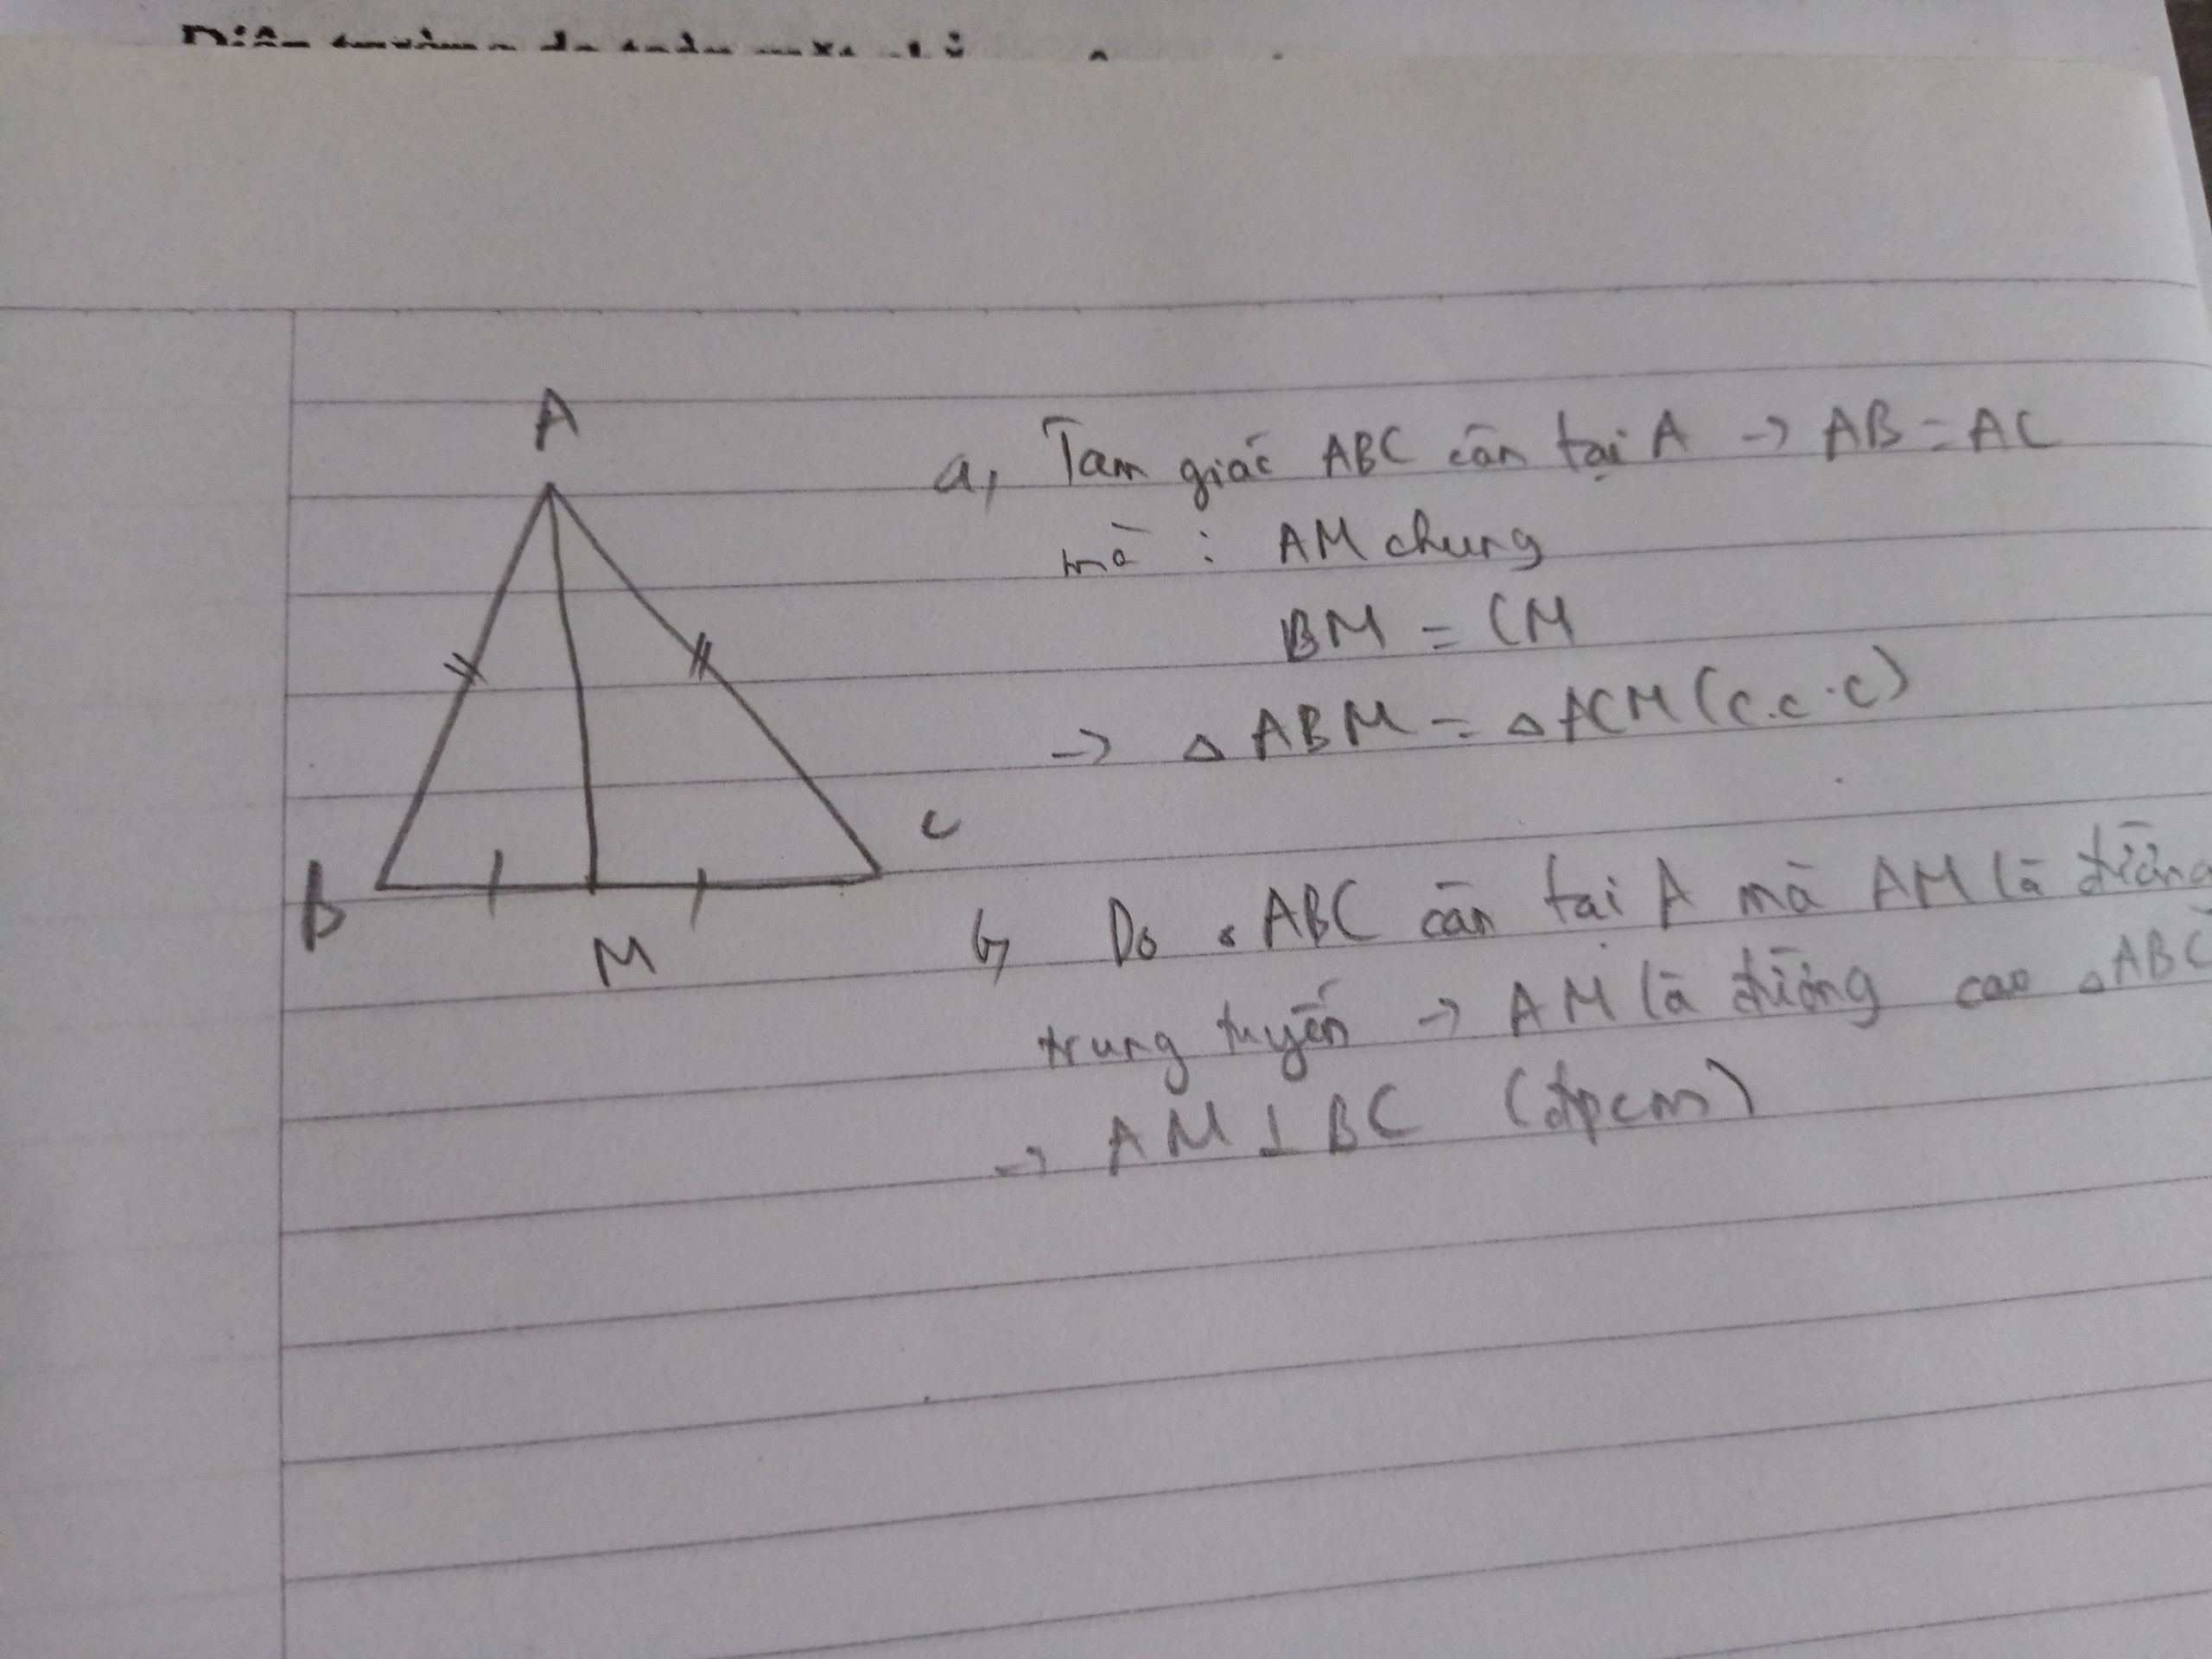 A
B
M
C
a, Tam giác ABC cân tại A → AB = AC
mà : AM chung
BM = CM
→ △ ABM = △ ACM (c.c.c)
b, Do △ ABC cân tại A mà AM là đường
trung tuyến → AM là đường cao △ ABC
→ AM ⊥ BC (đpcm)